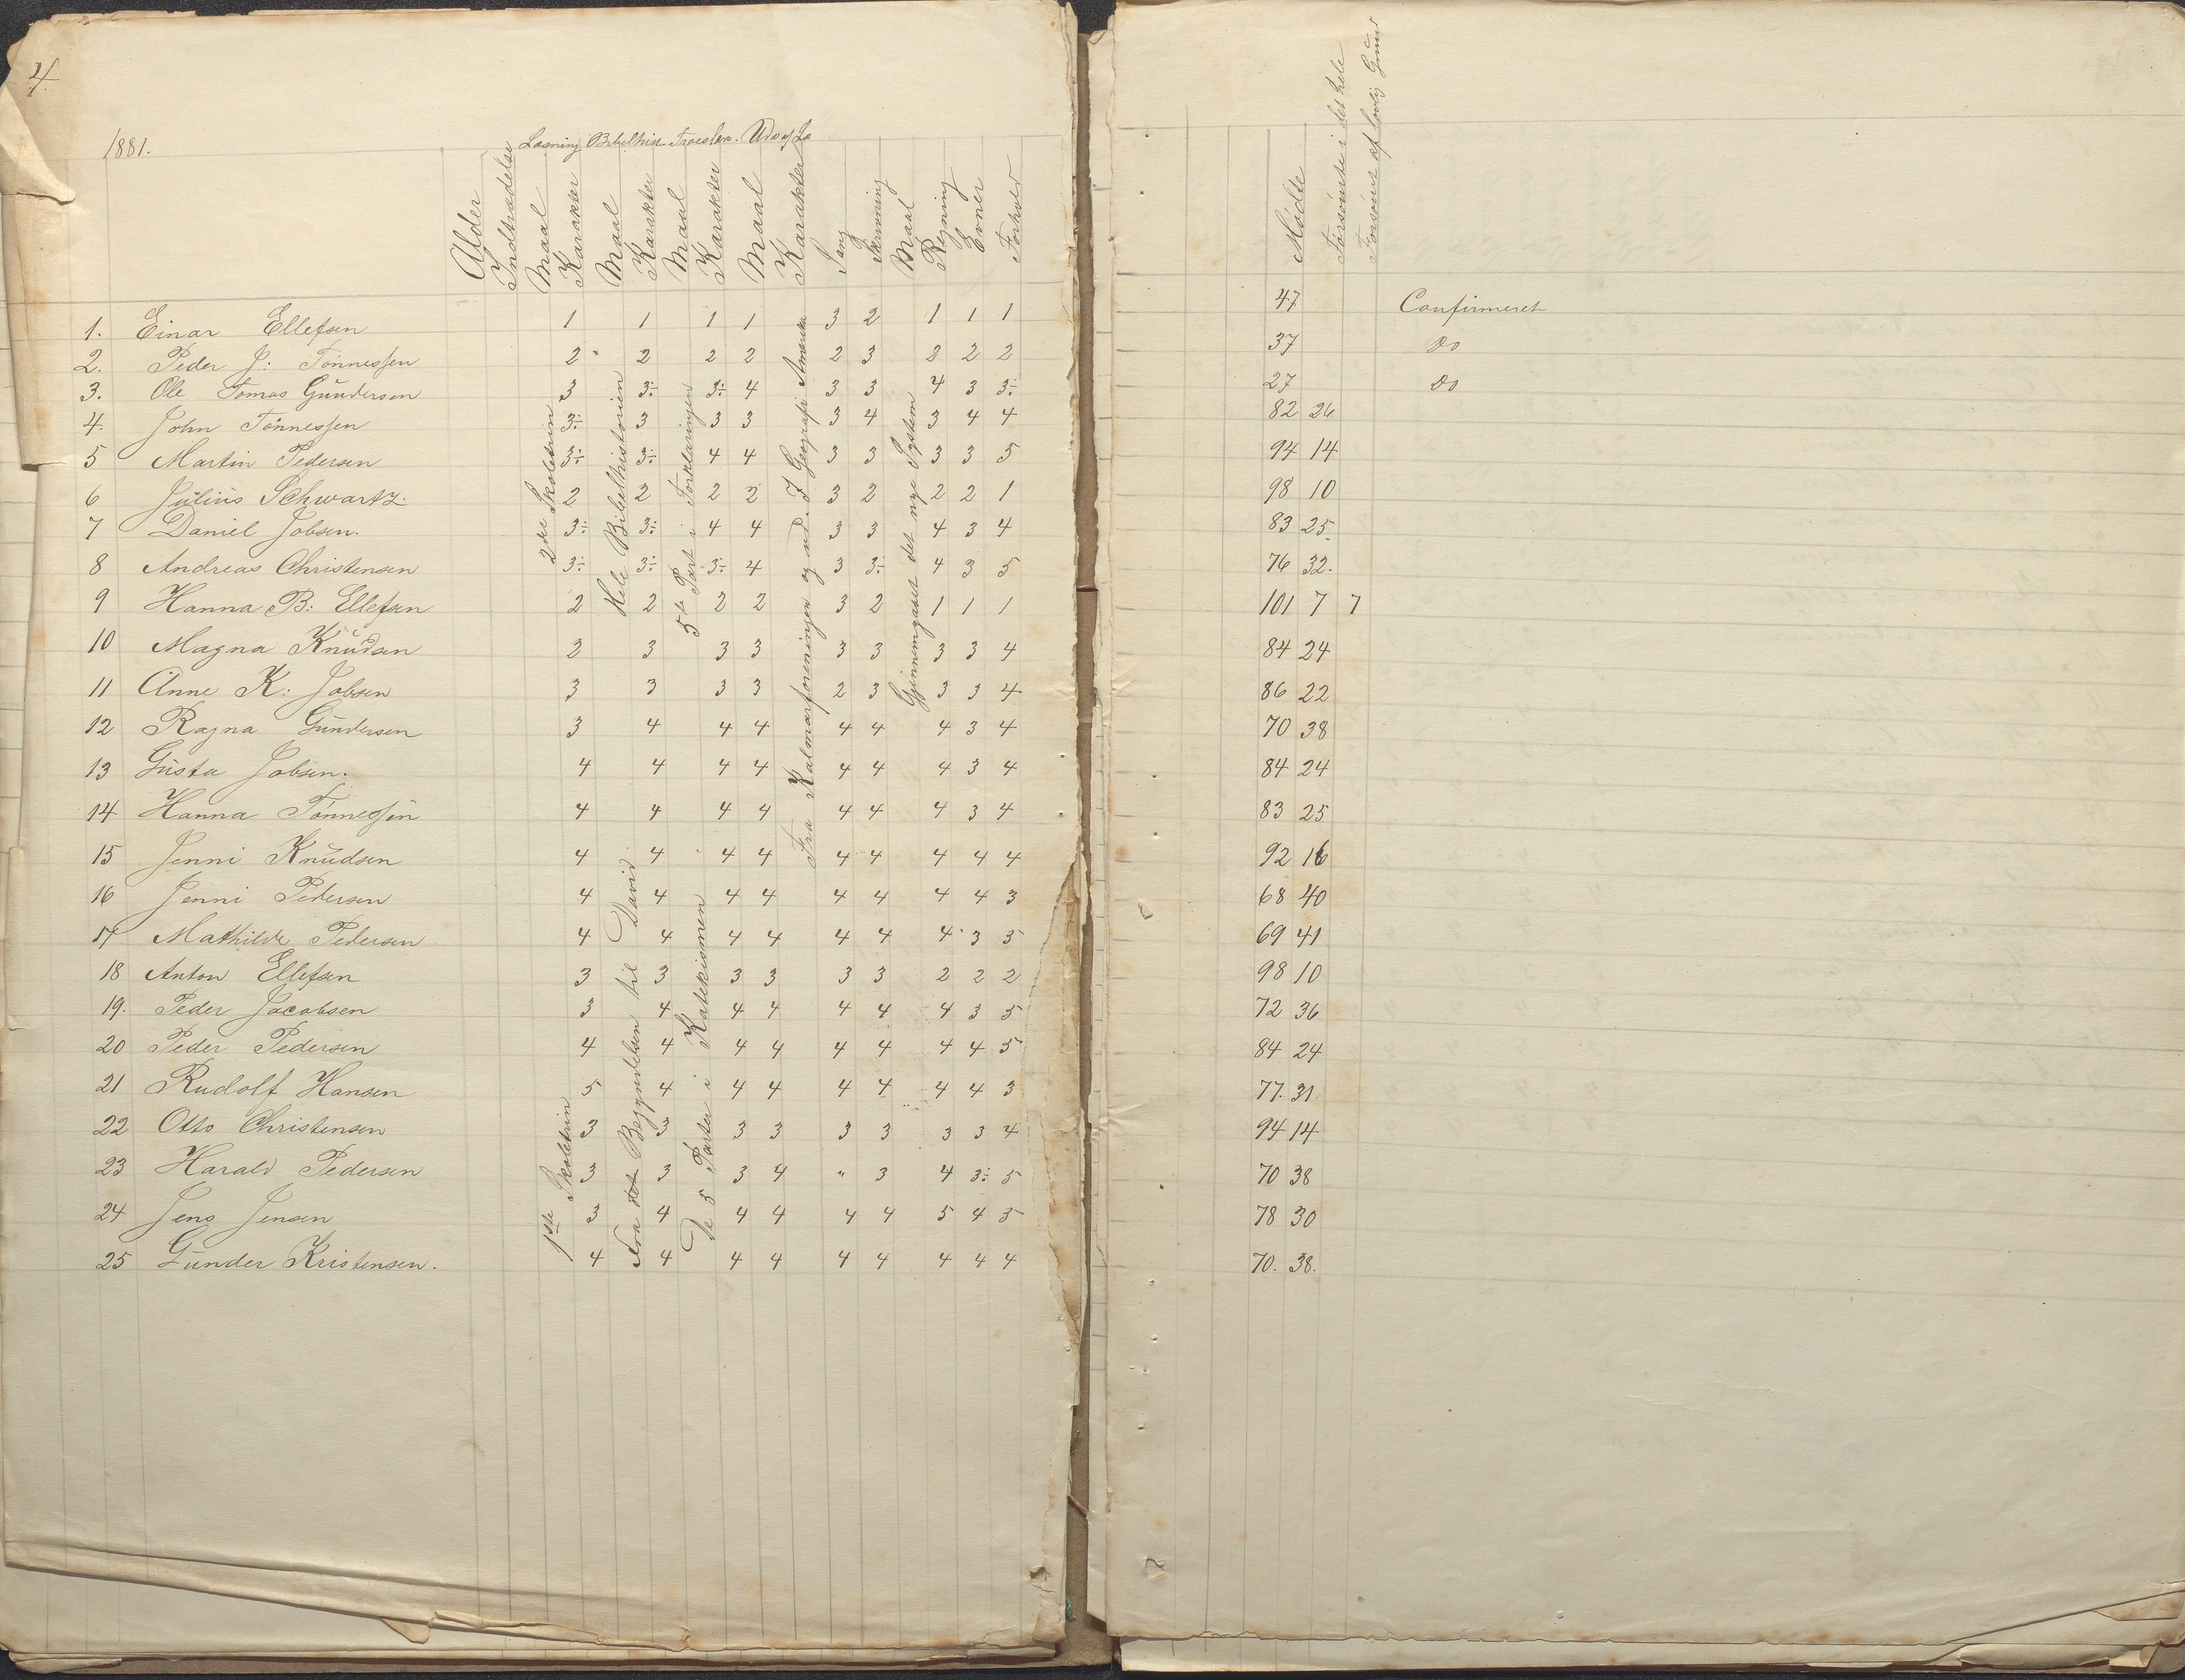 4.
1881.
Læsning Bibelhist. Troeslære. Udv af Læ
Alder Indtrædelse Maal Karakter Maal Karakter Maal Karakter Maal Karakter Sang Skrivning Maal Regning Evner Forhold
Mødte Forsømte i det hele Forsømt af lovlig Grund
1. Einar Ellefsen 1 1 1 1 3 2 1 1 1 47 Confirmeret
2. Peder J: Tønnessen 2 2 2 2 2 3 2 2 2 37 Do
3. Ole Tomas Gundersen 3 3÷ 3÷ 4 3 3 4 3 3÷ 27 Do
4. John Tønnessen 3÷ 3 3 3 3 4 3 4 4 82 26
5 Martin Pedersen 3÷ 3÷ 4 4 3 3 3 3 5 94 14
6 Julius Schwartz. 2 2 2 2 3 2 2 2 1 98 10
7 Daniel Jobsen. 3÷ 3÷ 4 4 3 3 4 3 4 83 25.
8 Andreas Christensen 3÷ 3÷ 3÷ 4 3 3÷ 4 3 5 76 32.
9 Hanna B: Ellefsen 2 2 2 2 3 2 1 1 1 101 7 7
10 Magna Knudsen 2 3 3 3 3 3 3 3 4 84 24
11 Anne K: Jobsen 3 3 3 3 2 3 3 3 4 86 22
12 Ragna Gundersen 3 4 4 4 4 4 4 3 4 70 38
13 Gusta Jobsen. 4 4 4 4 4 4 4 3 4 84 24
14 Hanna Tønnessen 4 4 4 4 4 4 4 3 4 83 25
15 Jenni Knudsen 4 4 4 4 4 4 4 4 4 92 16
16 Jenni Pedersen 4 4 4 4 4 4 4 4 3 68 40
17 Mathilde Pedersen 4 4 4 4 4 4 4 3 5 69 41
18 Anton Ellefsen 3 3 3 3 3 3 2 2 2 98 10
19. Peder Jacobsen 3 4 4 4 4 4 4 3 5 72 36
20 Peder Pedersen 4 4 4 4 4 4 4 4 5 84 24
21 Rudolf Hansen 5 4 4 4 4 4 4 4 3 77. 31.
22 Otto Christensen 3 3 3 3 3 3 3 3 4 94 14
23 Harald Pedersen 3 3 3 4 " 3 4 3÷ 5 70 38
24 Jens Jensen 3 4 4 4 4 4 5 4 5 78 30
25 Gunder Kristensen. 4 4 4 4 4 4 4 4 4 70. 38.
2det Skoletrin
Hele Bibelhistorien
5te Part i Forklaringen
Fra Kalmarforeningen og ud. I Geografi Amerika
Gjennemgaaet det nye System
1ste Skoletrin
Fra det Begyndelsen til David
De 5 Parter i Katekismen